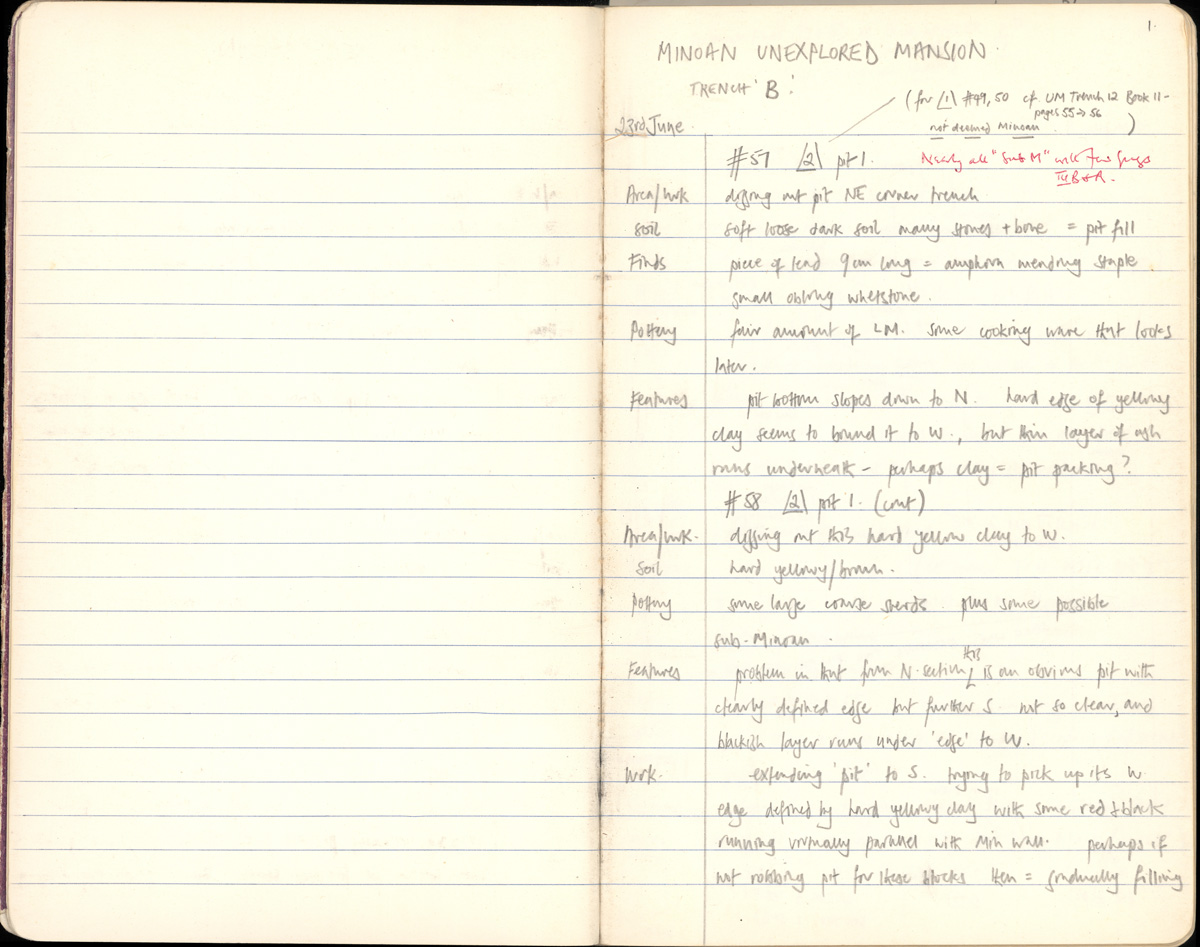 1.
MINOAN UNEXPLORED MANSION.
TRENCH 'B'.
(for /1\ #49, 50 cf. UM Trench 12 Book 11 -
pages 55 → 56
not deemed Minoan )
23rd June
#57 /2\ pit 1. Nearly all "Sub M" with few frags
Area/work digging out pit NE corner trench
Soil soft loose dark soil many stones + bone = pit fill
Finds piece of lead 9cm long = amphora mending staple
small oblong whetstone.
Pottery fair amount of LM. some cooking ware that looks
later.
Features pit bottom slopes down to N. hard edge of yellowy
clay seems to bound it to W., but thin layer of ash
runs underneath - perhaps clay = pit packing?
#58 /2\ pit 1. (cont)
Area/work. digging out this hard yellow clay to W.
Soil hard yellowy/brown.
Pottery some large coarse sherds. plus some possible
sub-Minoan.
Features problem in that from N. section this is an obvious pit with
clearly defined edge but further S. not so clear, and
blackish layer runs under 'edge' to W.
Work. extending 'pit' to S. trying to pick up its W.
edge defined by hard yellowy clay with some red & black
running virtually parallel with Min wall. perhaps if
not robbing pit for these blocks then = gradually filling